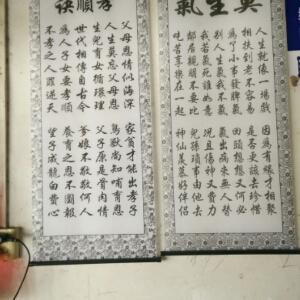 莫生氣
人生就像一場戲
因為有緣才相聚
相扶到老不容易
是否更該去珍惜
為了小事發脾氣
回頭想想又何必
別人生氣我不氣
氣出病來無人替
我若氣死誰如意
況且傷神又費力
鄰居親朋不要比
兒孫瑣事由他去
吃苦享樂在一起
神仙羨慕好伴侶
孝順訣
父母恩情似海深
人生莫忘父母恩
生兒育女循環理
世代相傳自古今
為人子女要孝順
不孝之人罪逆天
家貧才能出孝子
鳥獸尚知哺育恩
父子原是骨肉情
爹娘不敬敬何人
養育之恩不圖報
望子成龍白費心